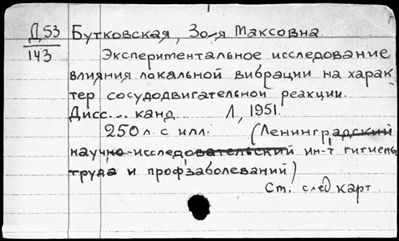 Д 53 Бутковская, Зоя Максовна
143 Экспериментальное исследование
влияния локальной вибрации на харак
тер сосудодвигательной реакции.
Дисс... канд. Л, 1951.
250 л. с илл. (Ленинградский
научно-исследовательский ин-т гигиены
труда и профзаболеваний)
См. след карт.